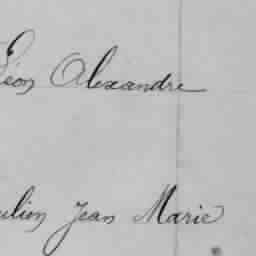 Léon Alexandre
ulien Jean Marie